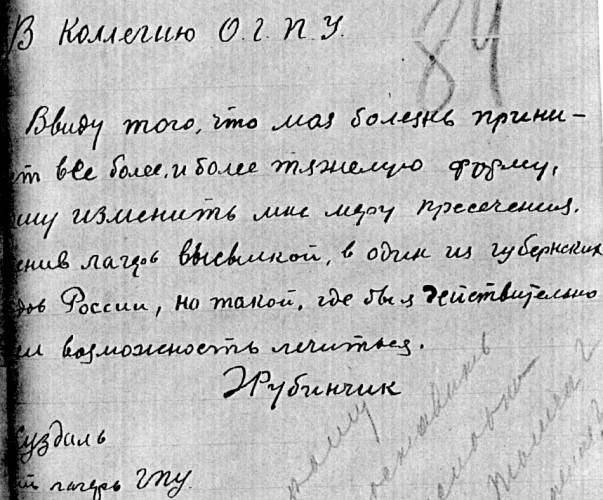 В Коллегию О.Г.П.У.
84
Ввиду того, что моя болезнь прини-
ет все более, и более тяжелую форму,
шу изменить мне меру пресечения,
енив лагерь высылкой, в один из губернских
дов России, но такой, где бы я действительно
ел возможность лечиться.
Рубинчик
Суздаль
лагерь ГПУ.